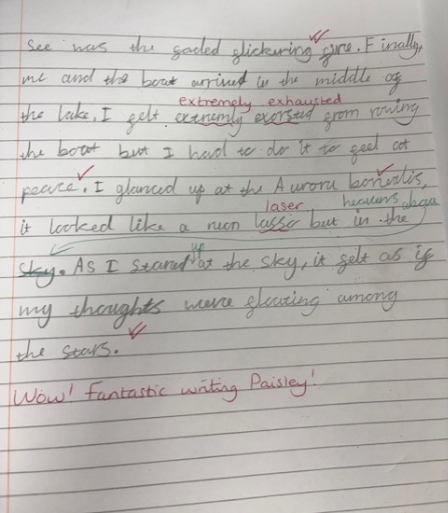 see was the faded flickering fire. Finally,
me and the boat arrived in the middle of
extremely exhausted
the lake. I felt extremly exorsted from rowing
the boat but I had to do it to feel at
peace. I glanced up at the Aurora borealis,
laser heavens above
it looked like a neon lasso but in the
up
sky. As I stared at the sky, it felt as if
my thoughts were floating among
the stars.
Wow! Fantastic writing Paisley!